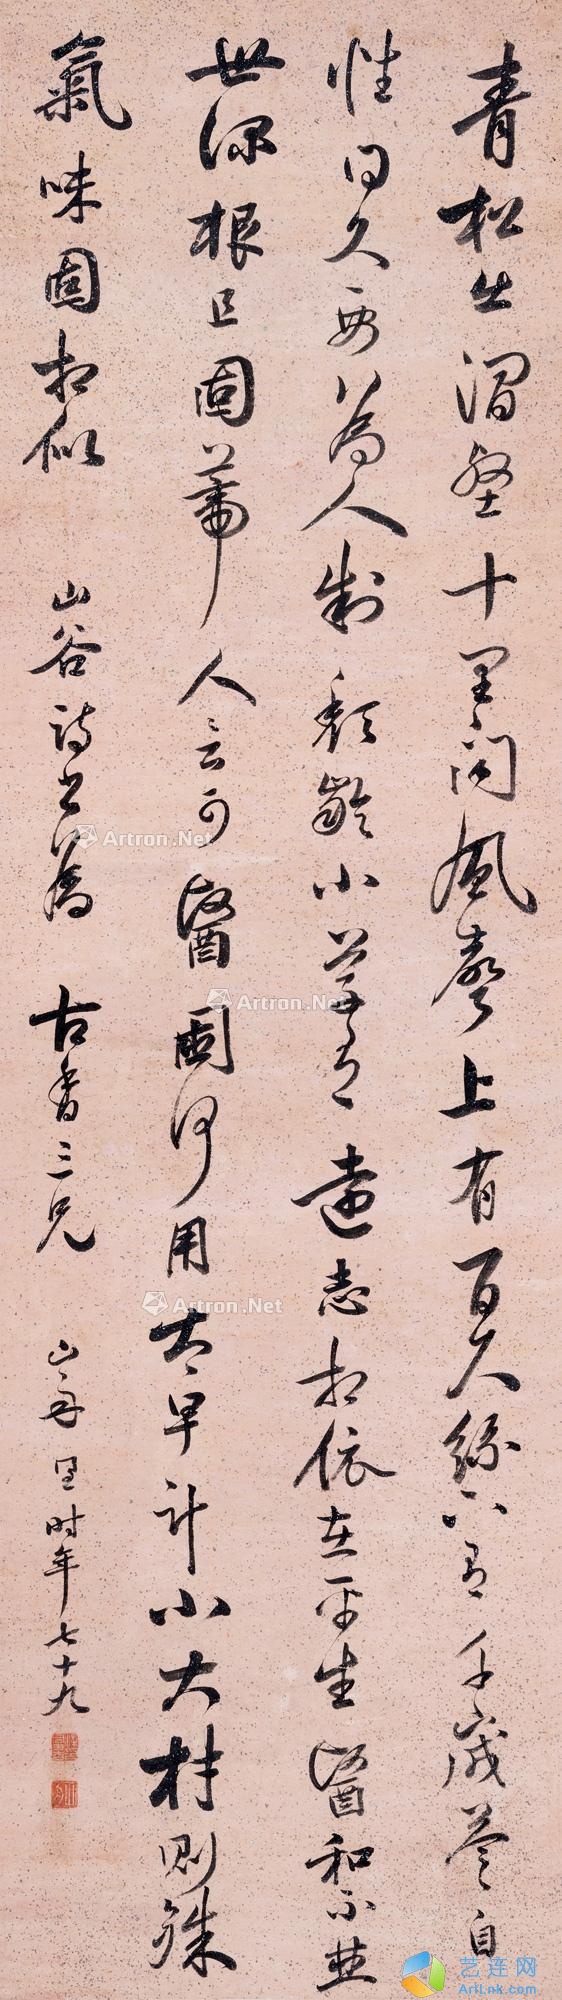 青松出澗壑十里聞風聲上有百尺絲下有千歲苓自
性得久要為人制頹齡小草有遠志相依在平生醫和不並
世深根且固蒂人言可醫國何用太早計小大材則殊
氣味固相似 山谷詩書為 古香三兄 山舟 時年七十九
Artron.Net
Artron.Net
Artron.Net
艺连网
ArtLnk.com